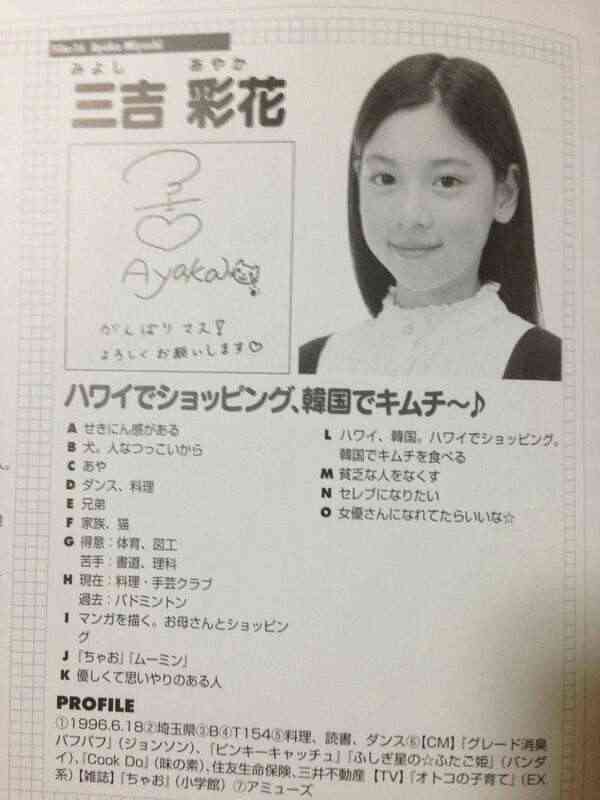 File.16 Ayaka Miyoshi
みよし あやか
三吉 彩花
Ayaka
がんばりマス!
よろしくお願いします♡
ハワイでショッピング、韓国でキムチ〜♪
A せきにん感がある
B 犬。人なつっこいから
C あや
D ダンス、料理
E 兄弟
F 家族、猫
G 得意:体育、図工
苦手:書道、理科
H 現在:料理・手芸クラブ
過去:バドミントン
I マンガを描く。お母さんとショッピン
グ
J 「ちゃお」「ムーミン」
K 優しくて思いやりのある人
L ハワイ、韓国。ハワイでショッピング。
韓国でキムチを食べる
M 貧乏な人をなくす
N セレブになりたい
O 女優さんになれてたらいいな☆
PROFILE
①1996.6.18②埼玉県③B④T154⑤料理、読書、ダンス⑥【CM】「グレード消臭
パフパフ」(ジョンソン)、「ピンキーキャッチュ」「ふしぎ星の☆ふたご姫」(バンダ
イ)、「Cook Do」(味の素)、住友生命保険、三井不動産【TV】「オトコの子育て」(EX
系)【雑誌】「ちゃお」(小学館)⑦アミューズ